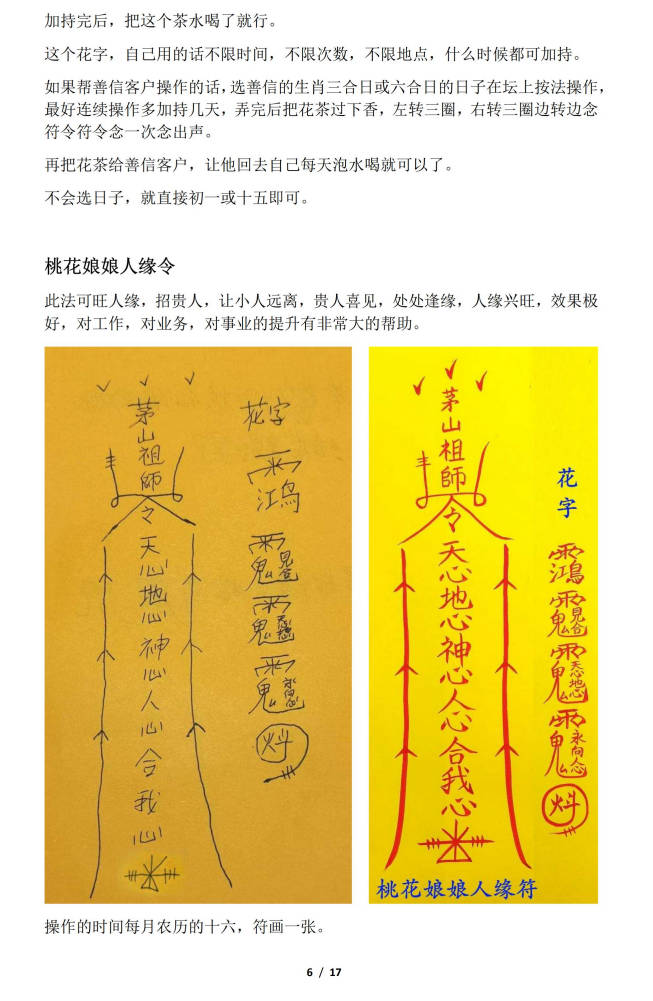 加持完后，把这个茶水喝了就行。
这个花字，自己用的话不限时间，不限次数，不限地点，什么时候都可加持。
如果帮善信客户操作的话，选善信的生肖三合日或六合日的日子在坛上按法操作，
最好连续操作多加持几天，弄完后把花茶过下香，左转三圈，右转三圈边转边念
符令符令念一次念出声。
再把花茶给善信客户，让他回去自己每天泡水喝就可以了。
不会选日子，就直接初一或十五即可。
桃花娘娘人缘令
此法可旺人缘，招贵人，让小人远离，贵人喜见，处处逢缘，人缘兴旺，效果极
好，对工作，对业务，对事业的提升有非常大的帮助。
茅山祖師
令
天心地心神心人心合我心
花字
茅山祖師
令
天心地心神心人心合我心
花字
桃花娘娘人缘符
操作的时间每月农历的十六，符画一张。
6 / 17